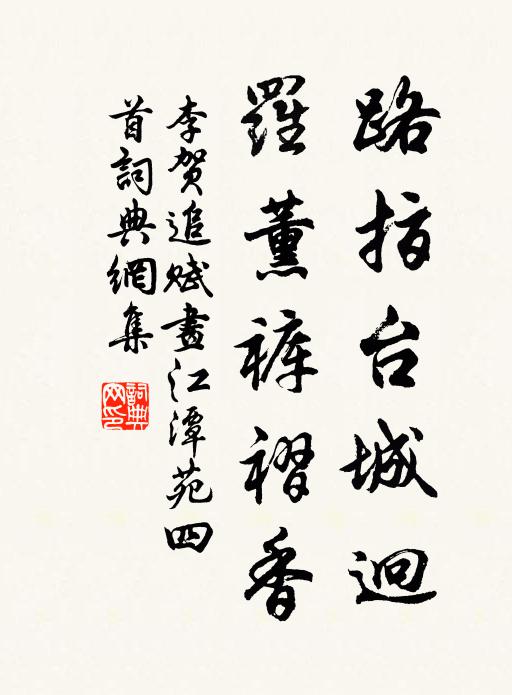 路指台城迥
羅薰褲褶香
李贺追赋畫江潭苑四
首詞典網集
詞典网印